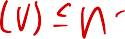 (v) ≤ n